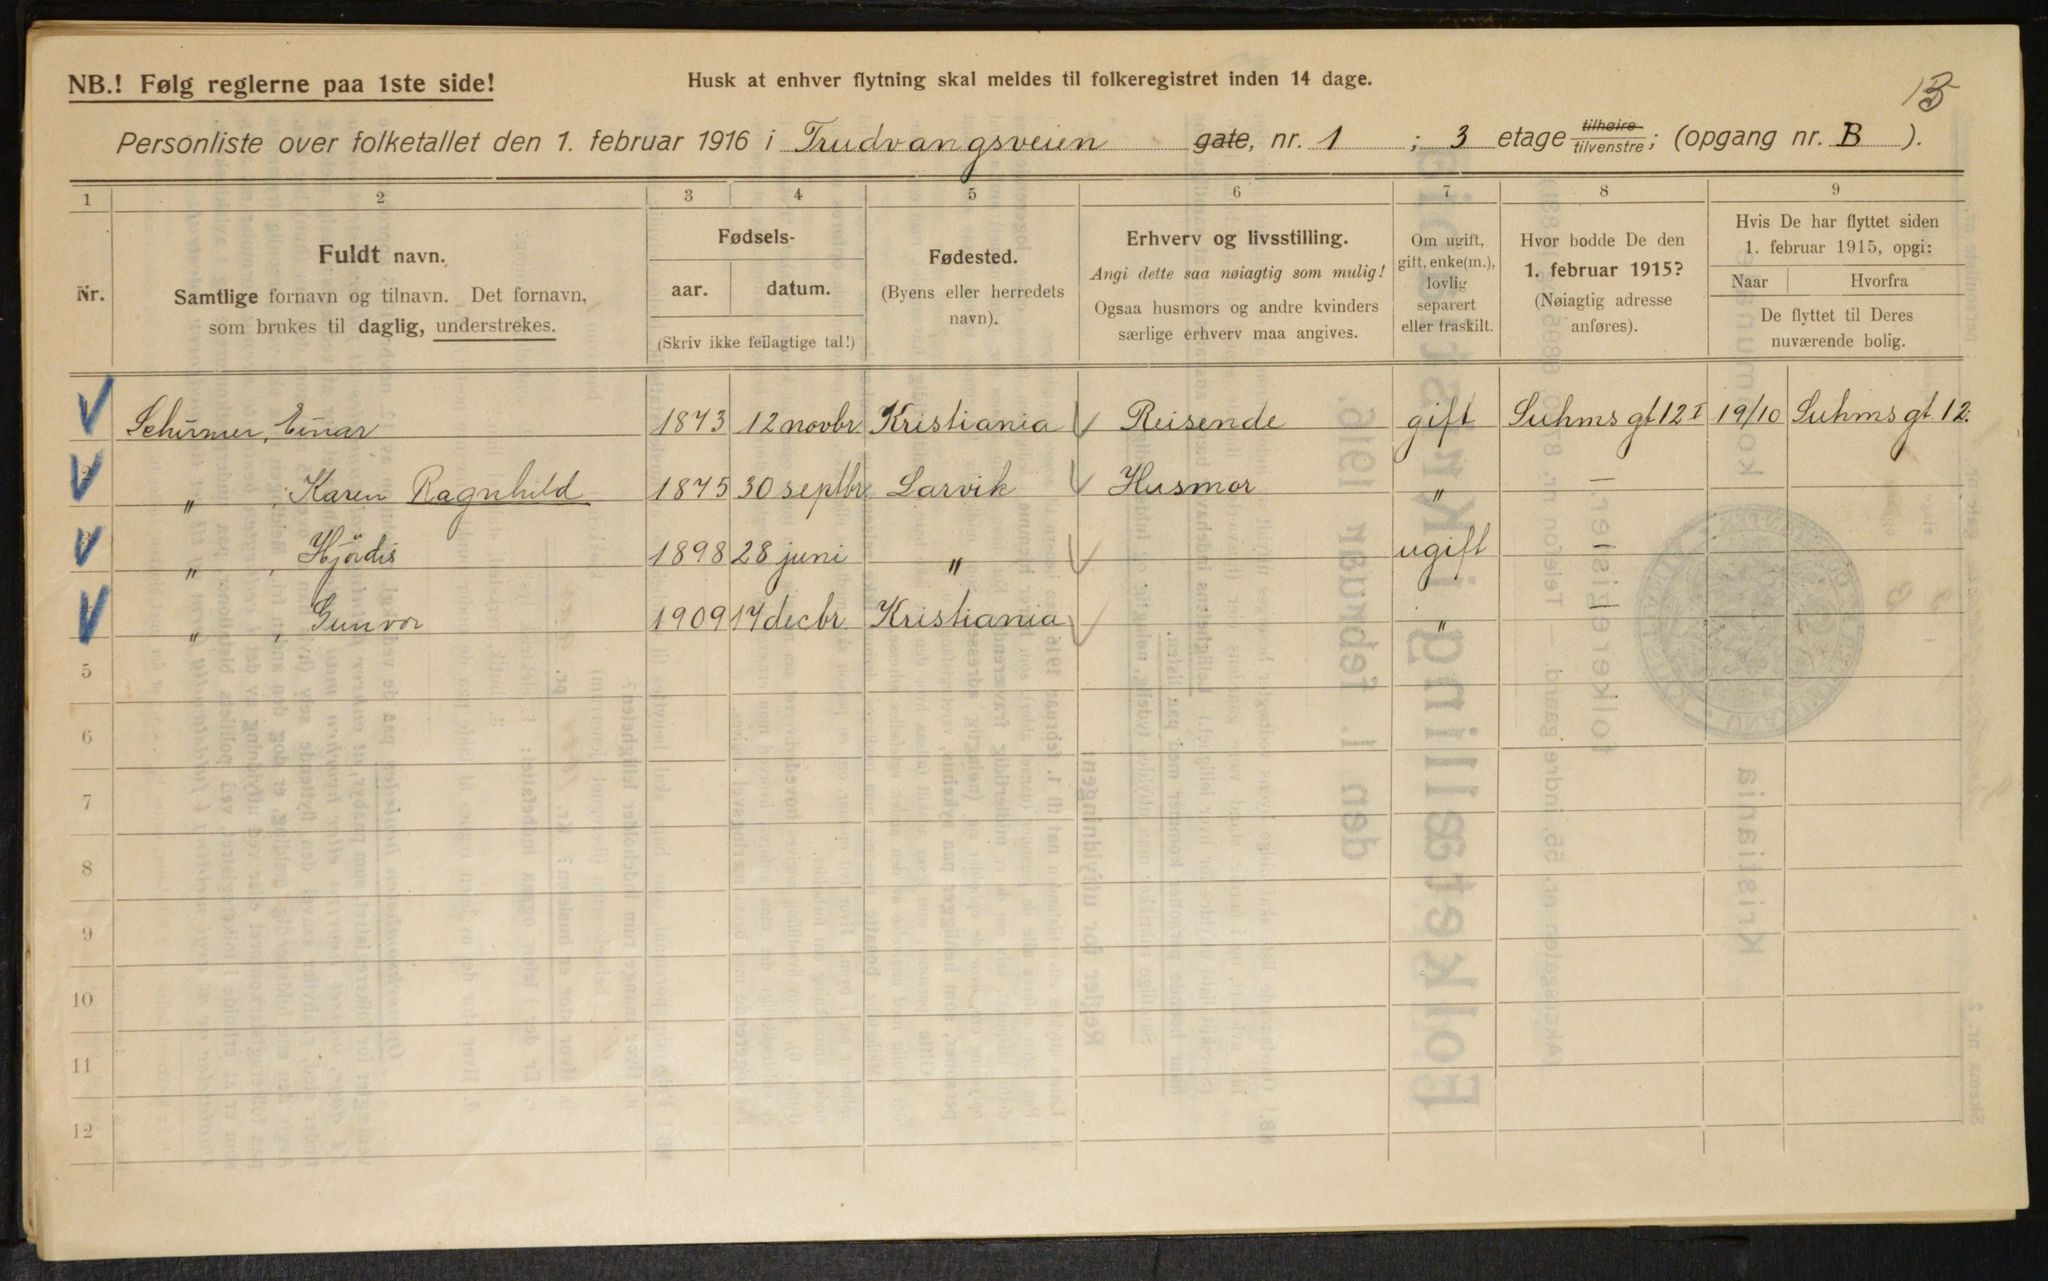 NB.! Følg reglerne paa 1ste side!
Husk at enhver flytning skal meldes til folkeregistret inden 14 dage.
Personliste over folketallet den 1. februar 1916 i Trudvangsveien gate, nr. 1 ; 3 etage tilhøire tilvenstre ; (opgang nr. B ).
1 2 3 4 5 6 7 8 9
Nr.
Fuldt navn.
Samtlige fornavn og tilnavn. Det fornavn,
som brukes til daglig, understrekes.
Fødsels-
aar. datum.
(Skriv ikke feilagtige tal!)
Fødested.
(Byens eller herredets
navn).
Erhverv og livsstilling.
Angi dette saa nøiagtig som mulig!
Ogsaa husmors og andre kvinders
særlige erhverv maa angives.
Om ugift,
gift, enke(m.),
lovlig
separert
eller fraskilt.
Hvor bodde De den
1. februar 1915?
(Nøiagtig adresse
anføres).
Hvis De har flyttet siden
1. februar 1915, opgi:
Naar Hvorfra
De flyttet til Deres
nuværende bolig.
Schirmer, Einar 1873 12 novbr Kristiania Reisende gift Suhms gt 12 I 19/10 Suhms gt. 12.
2 " , Karen Ragnhild 1875 30 septbr Larvik Husmor " —
3 " , Hjördis 1898 28 juni " ugift —
" , Gunvor 1909 17 decbr Kristiania " —
5
6
7
8
9
10
11
12